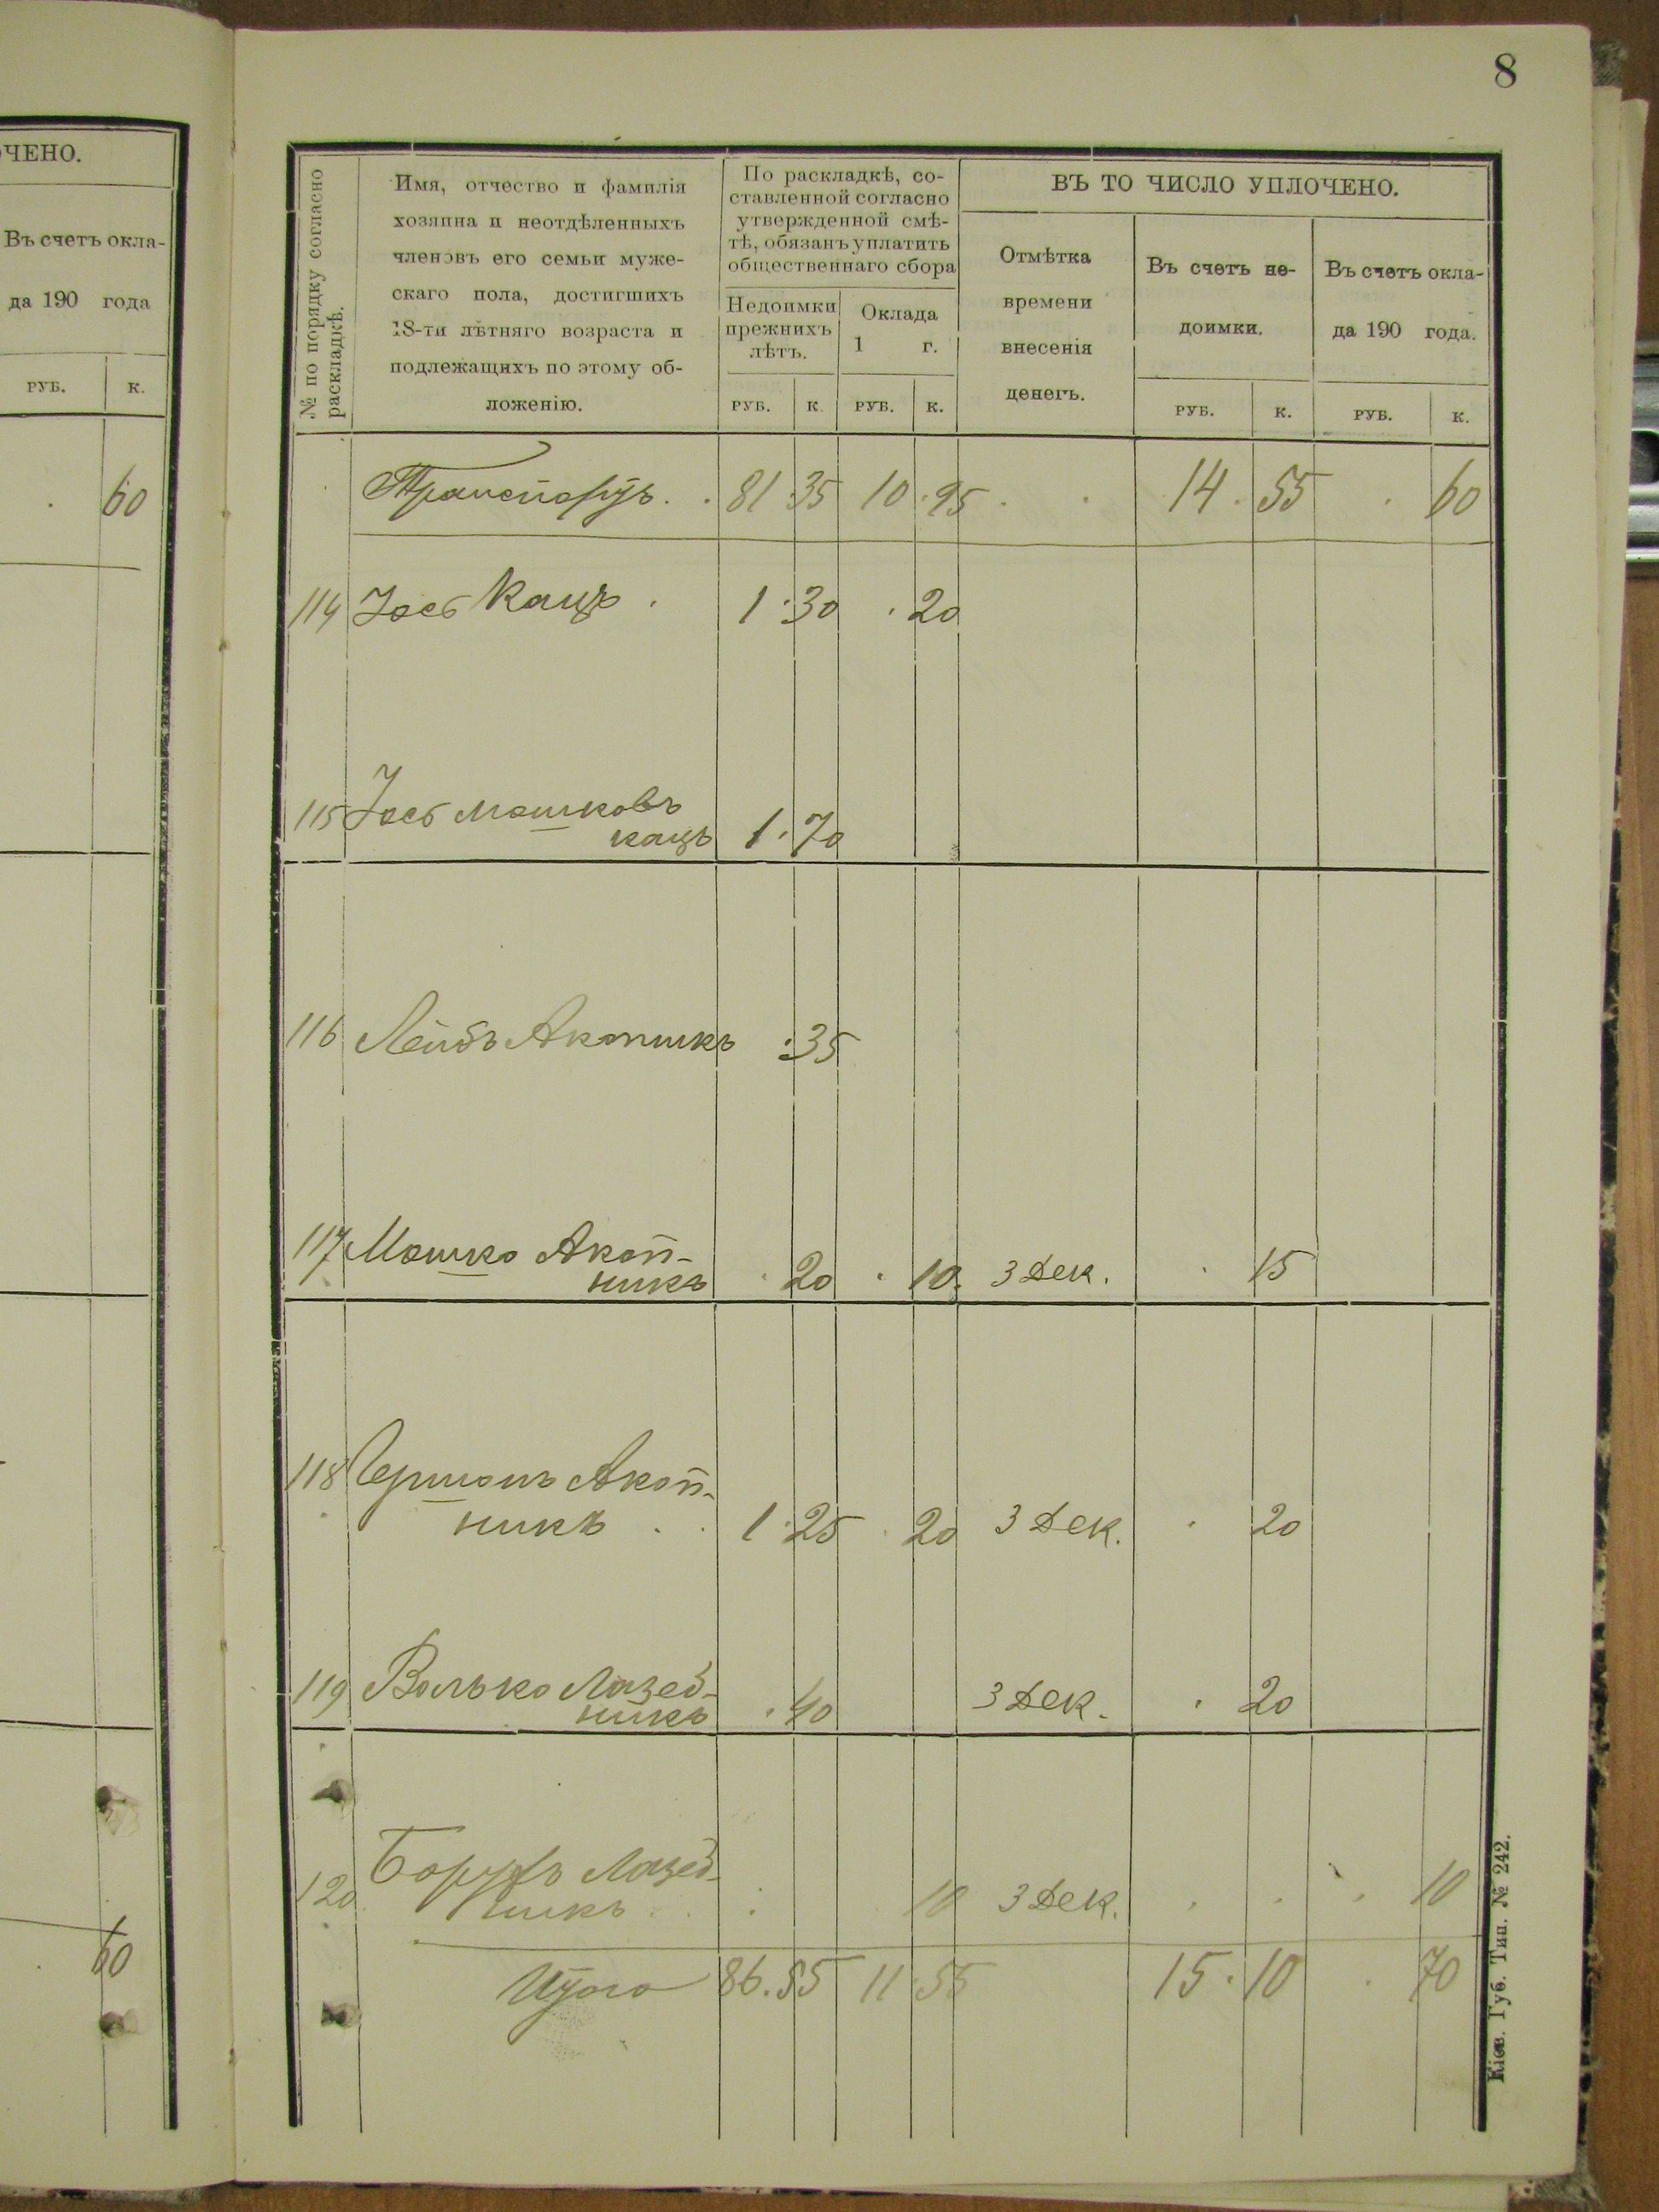 ОЧЕНО.
Въ счетъ окла-
да 190 года
РУБ. К.
. 60
60
8
№ по порядку согласно
раскладкѣ.
Имя, отчество и фамилія
хозяина и неотдѣленныхъ
членовъ его семьи муже-
скаго пола, достигшихъ
18-ти лѣтняго возраста и
подлежащихъ по этому об-
ложенію.
По раскладкѣ, со-
ставленной согласно
утвержденной смѣ-
тѣ, обязанъ уплатить
общественнаго сбора
Недоимки
прежнихъ
лѣтъ.
Оклада
1 г.
РУБ. К. РУБ. К.
ВЪ ТО ЧИСЛО УПЛОЧЕНО.
Отмѣтка
времени
внесенія
денегъ.
Въ счетъ не-
доимки.
РУБ. К.
Въ счетъ окла-
да 190 года.
РУБ. К.
Транспортъ . . 81 . 35 10 . 95 . . 14 . 55 . 60
114 Іось Кацъ . 1 . 30 . 20
115 Іось Мошковъ
кацъ 1 . 70
116 Лейбъ Акопникъ . 35
117 Мошко Акоп-
никъ . 20 . 10. 3 Дек. . 15
118 Гершонъ Акоп-
никъ . . 1 . 25 . 20 3 Дек. . 20
119 Волько Лазеб-
никъ . 40 3 Дек. . 20
120 Борухъ Лазеб-
никъ . . . 10 3 Дек. . . . 10
Итого 86 . 55 11 . 55 15 . 10 . 70
Кіев. Губ. Тип. № 242.